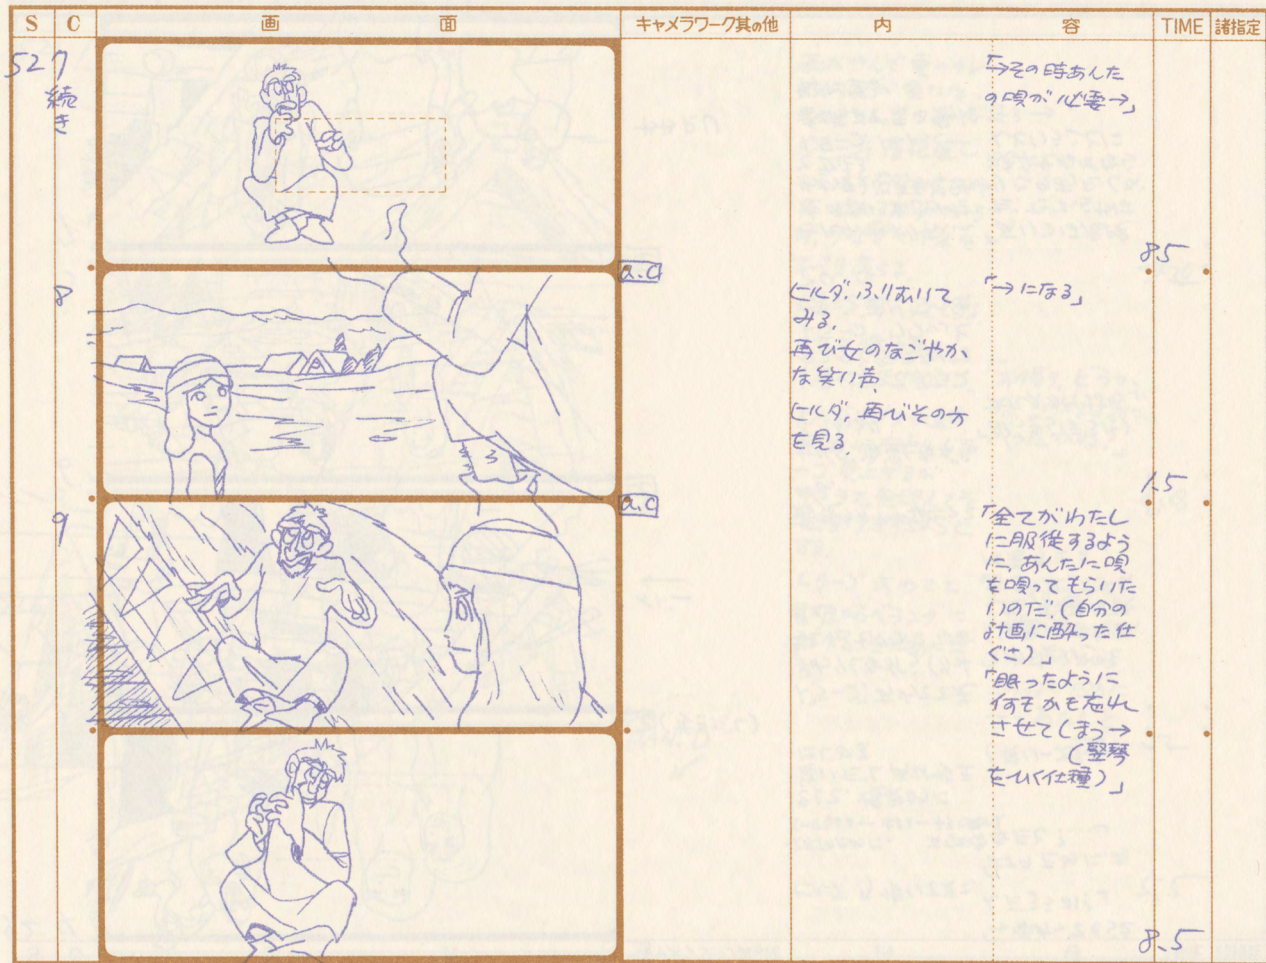 S C 画 面 キャメラワーク其の他 内 容 TIME 諸指定
527
続き
「→その時あんた
の唄が必要→」
85
8
a.c
ヒルダ、ふりむいて
みる、
再び女のなごやか
な笑い声、
ヒルダ、再びその方
を見る、
「→になる」
1.5
9
a.c
「全てがわたし
に服従するよう
に、あんたに唄
を唄ってもらいた
いのだ、(自分の
計画に酔った仕
ぐさ)」
「眠ったように
何もかも忘れ
させてしまう→
(竪琴
をひく仕種)」
8.5